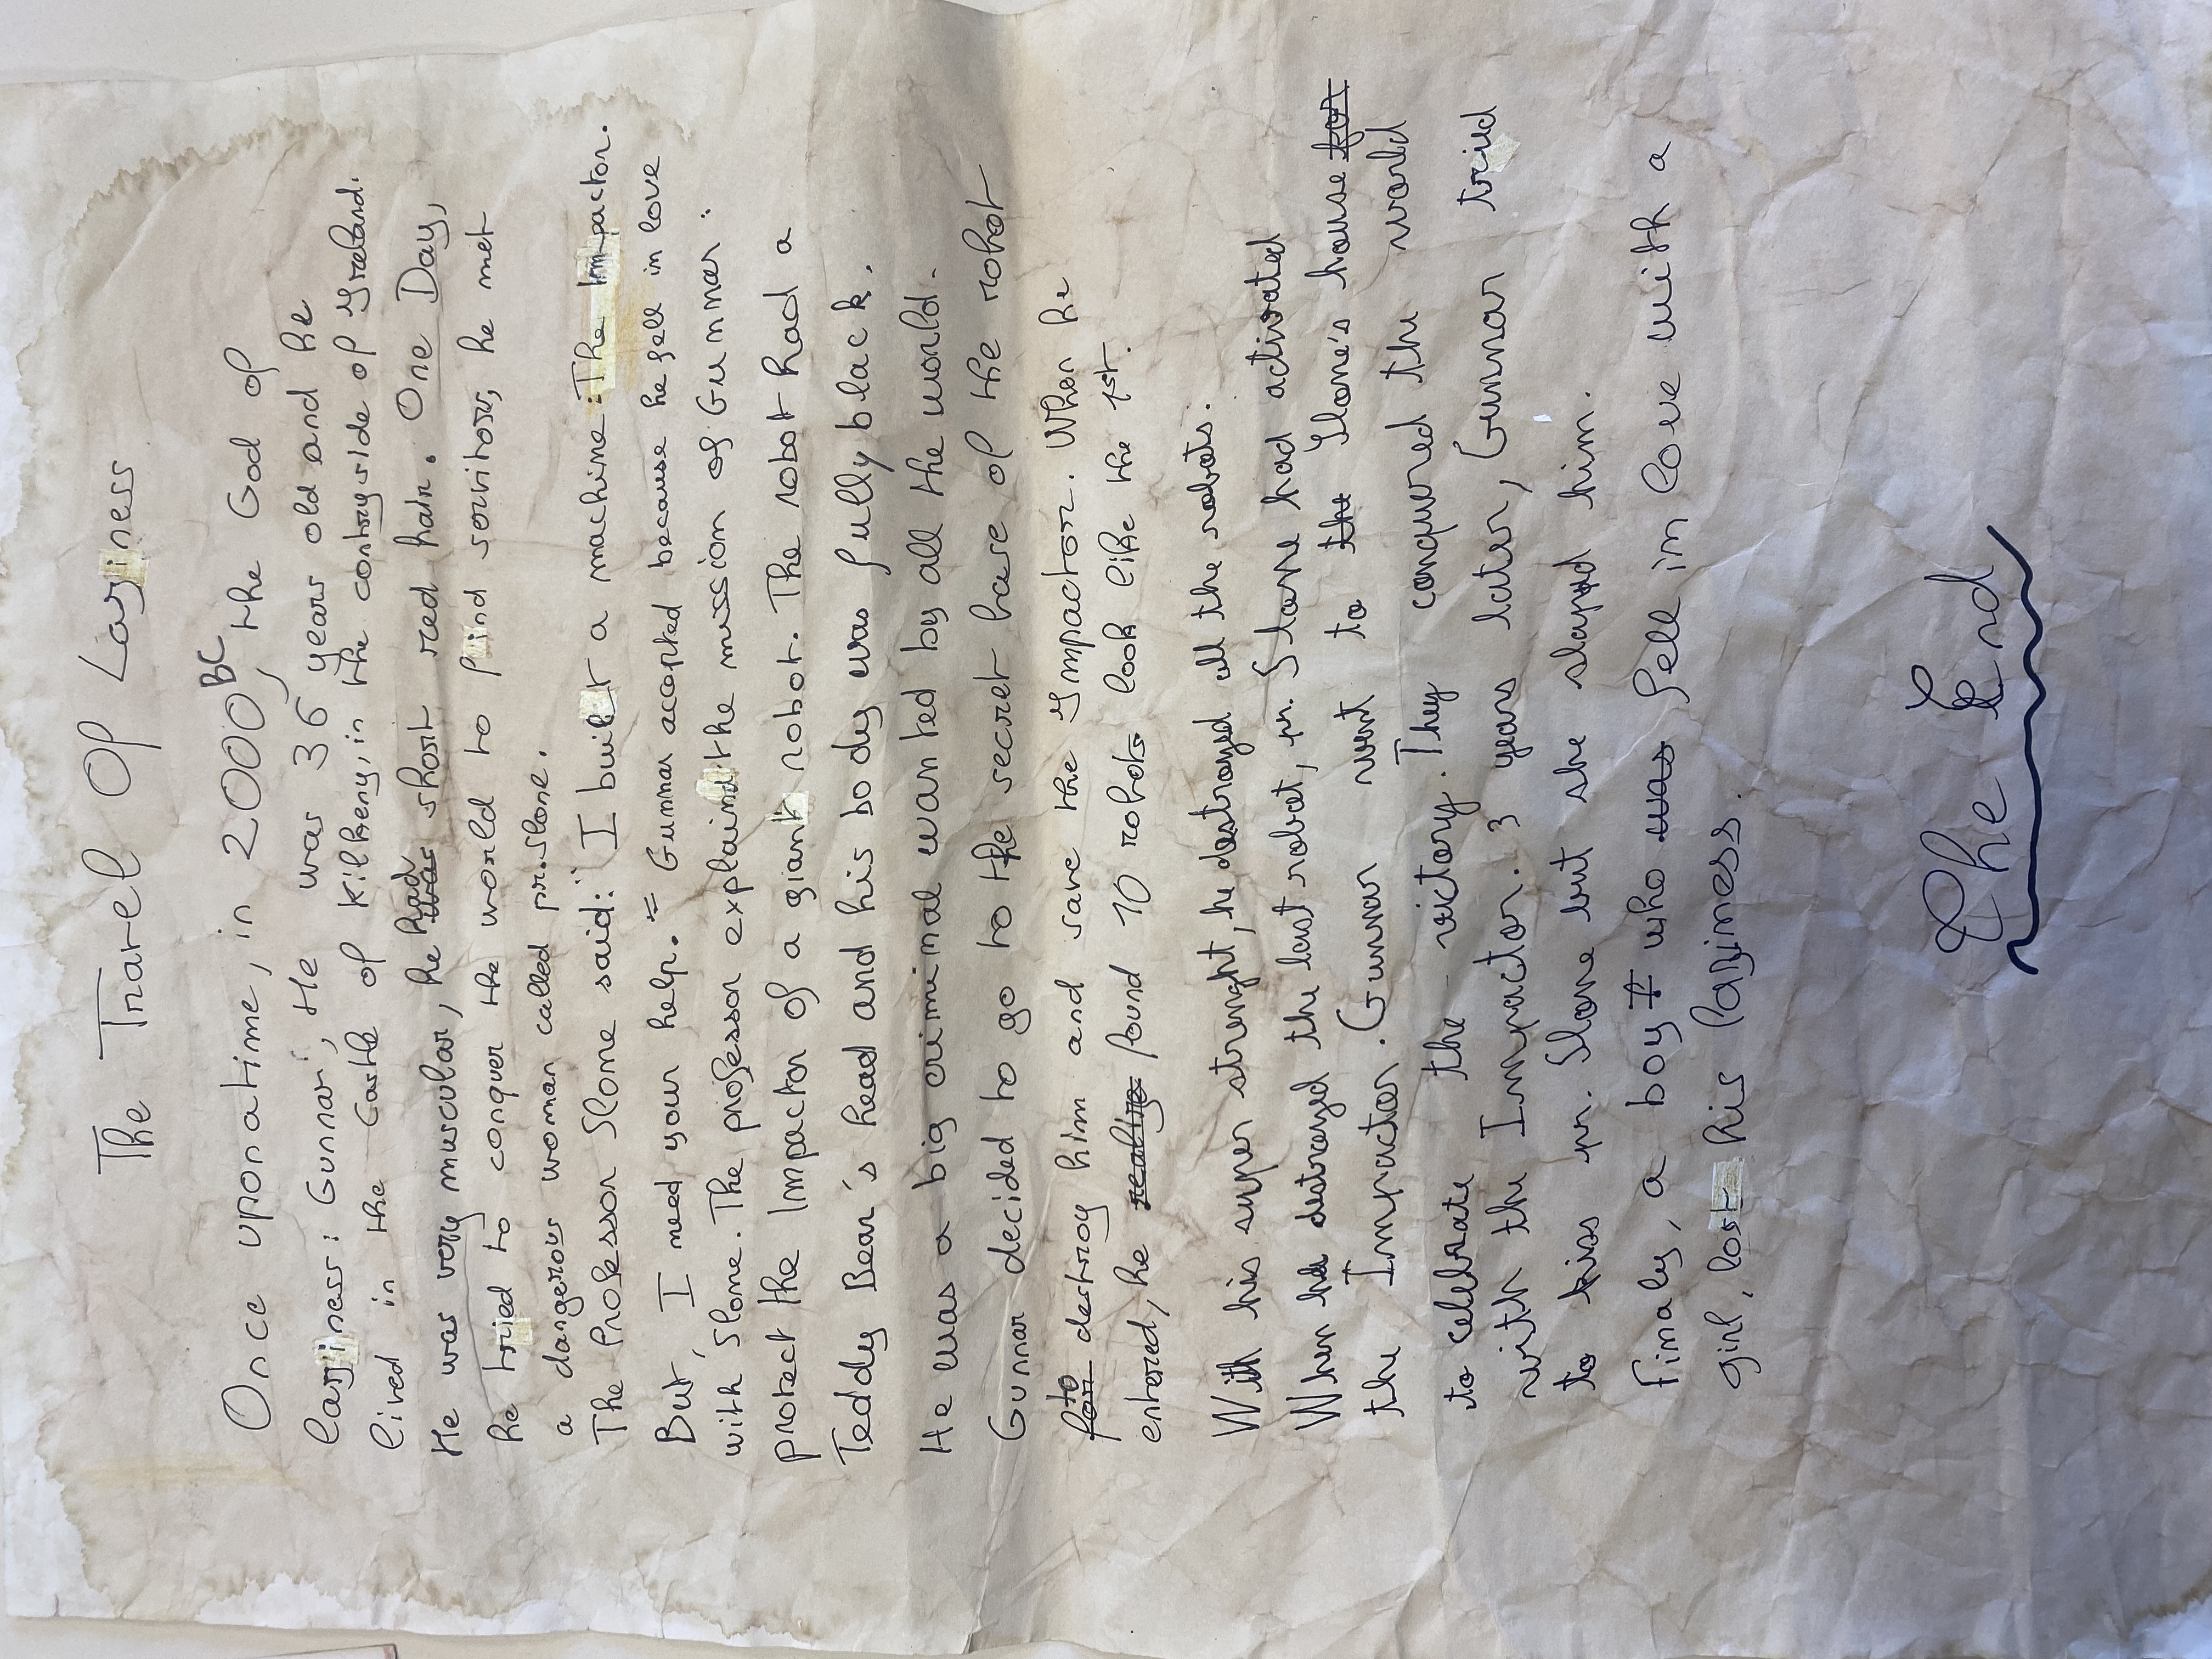 The Travel Of Laziness
Once upon a time, in 2000 BC, the God of
laziness: Gunnar; He was 36 years old and he
lived in the Castle of Kilkeny, in the contryside of Ireland.
He was very muscular, he had short red hair. One Day,
he tried to conquer the world to find servitors, he met
a dangerous woman called pr. Slone.
The Professor Slone said: "I built a machine: The Impactor.
But, I need your help." Gunnar accepted because he fell in love
with Slone. The professor explaind the mission of Gunnar:
protect the Impactor of a giant robot. The robot had a
Teddy Bear's head and his body was fully black.
He was a big criminal wanted by all the world.
Gunnar decided to go to the secret base of the robot
to destroy him and save the Impactor. When he
entered, he found 10 robots look like the 1st.
With his super strenght, he destroyed all the robots.
When he destroyed the last robot, pr. Slone had activated
the Impactor. Gunnar went to Slone's house
to celebrate the victory. They conquered the world
with the Impactor. 3 years later, Gunnar tried
to kiss pr. Slone but she slapped him.
Finaly, a boy who fell in love with a
girl, lost his laziness.
The End